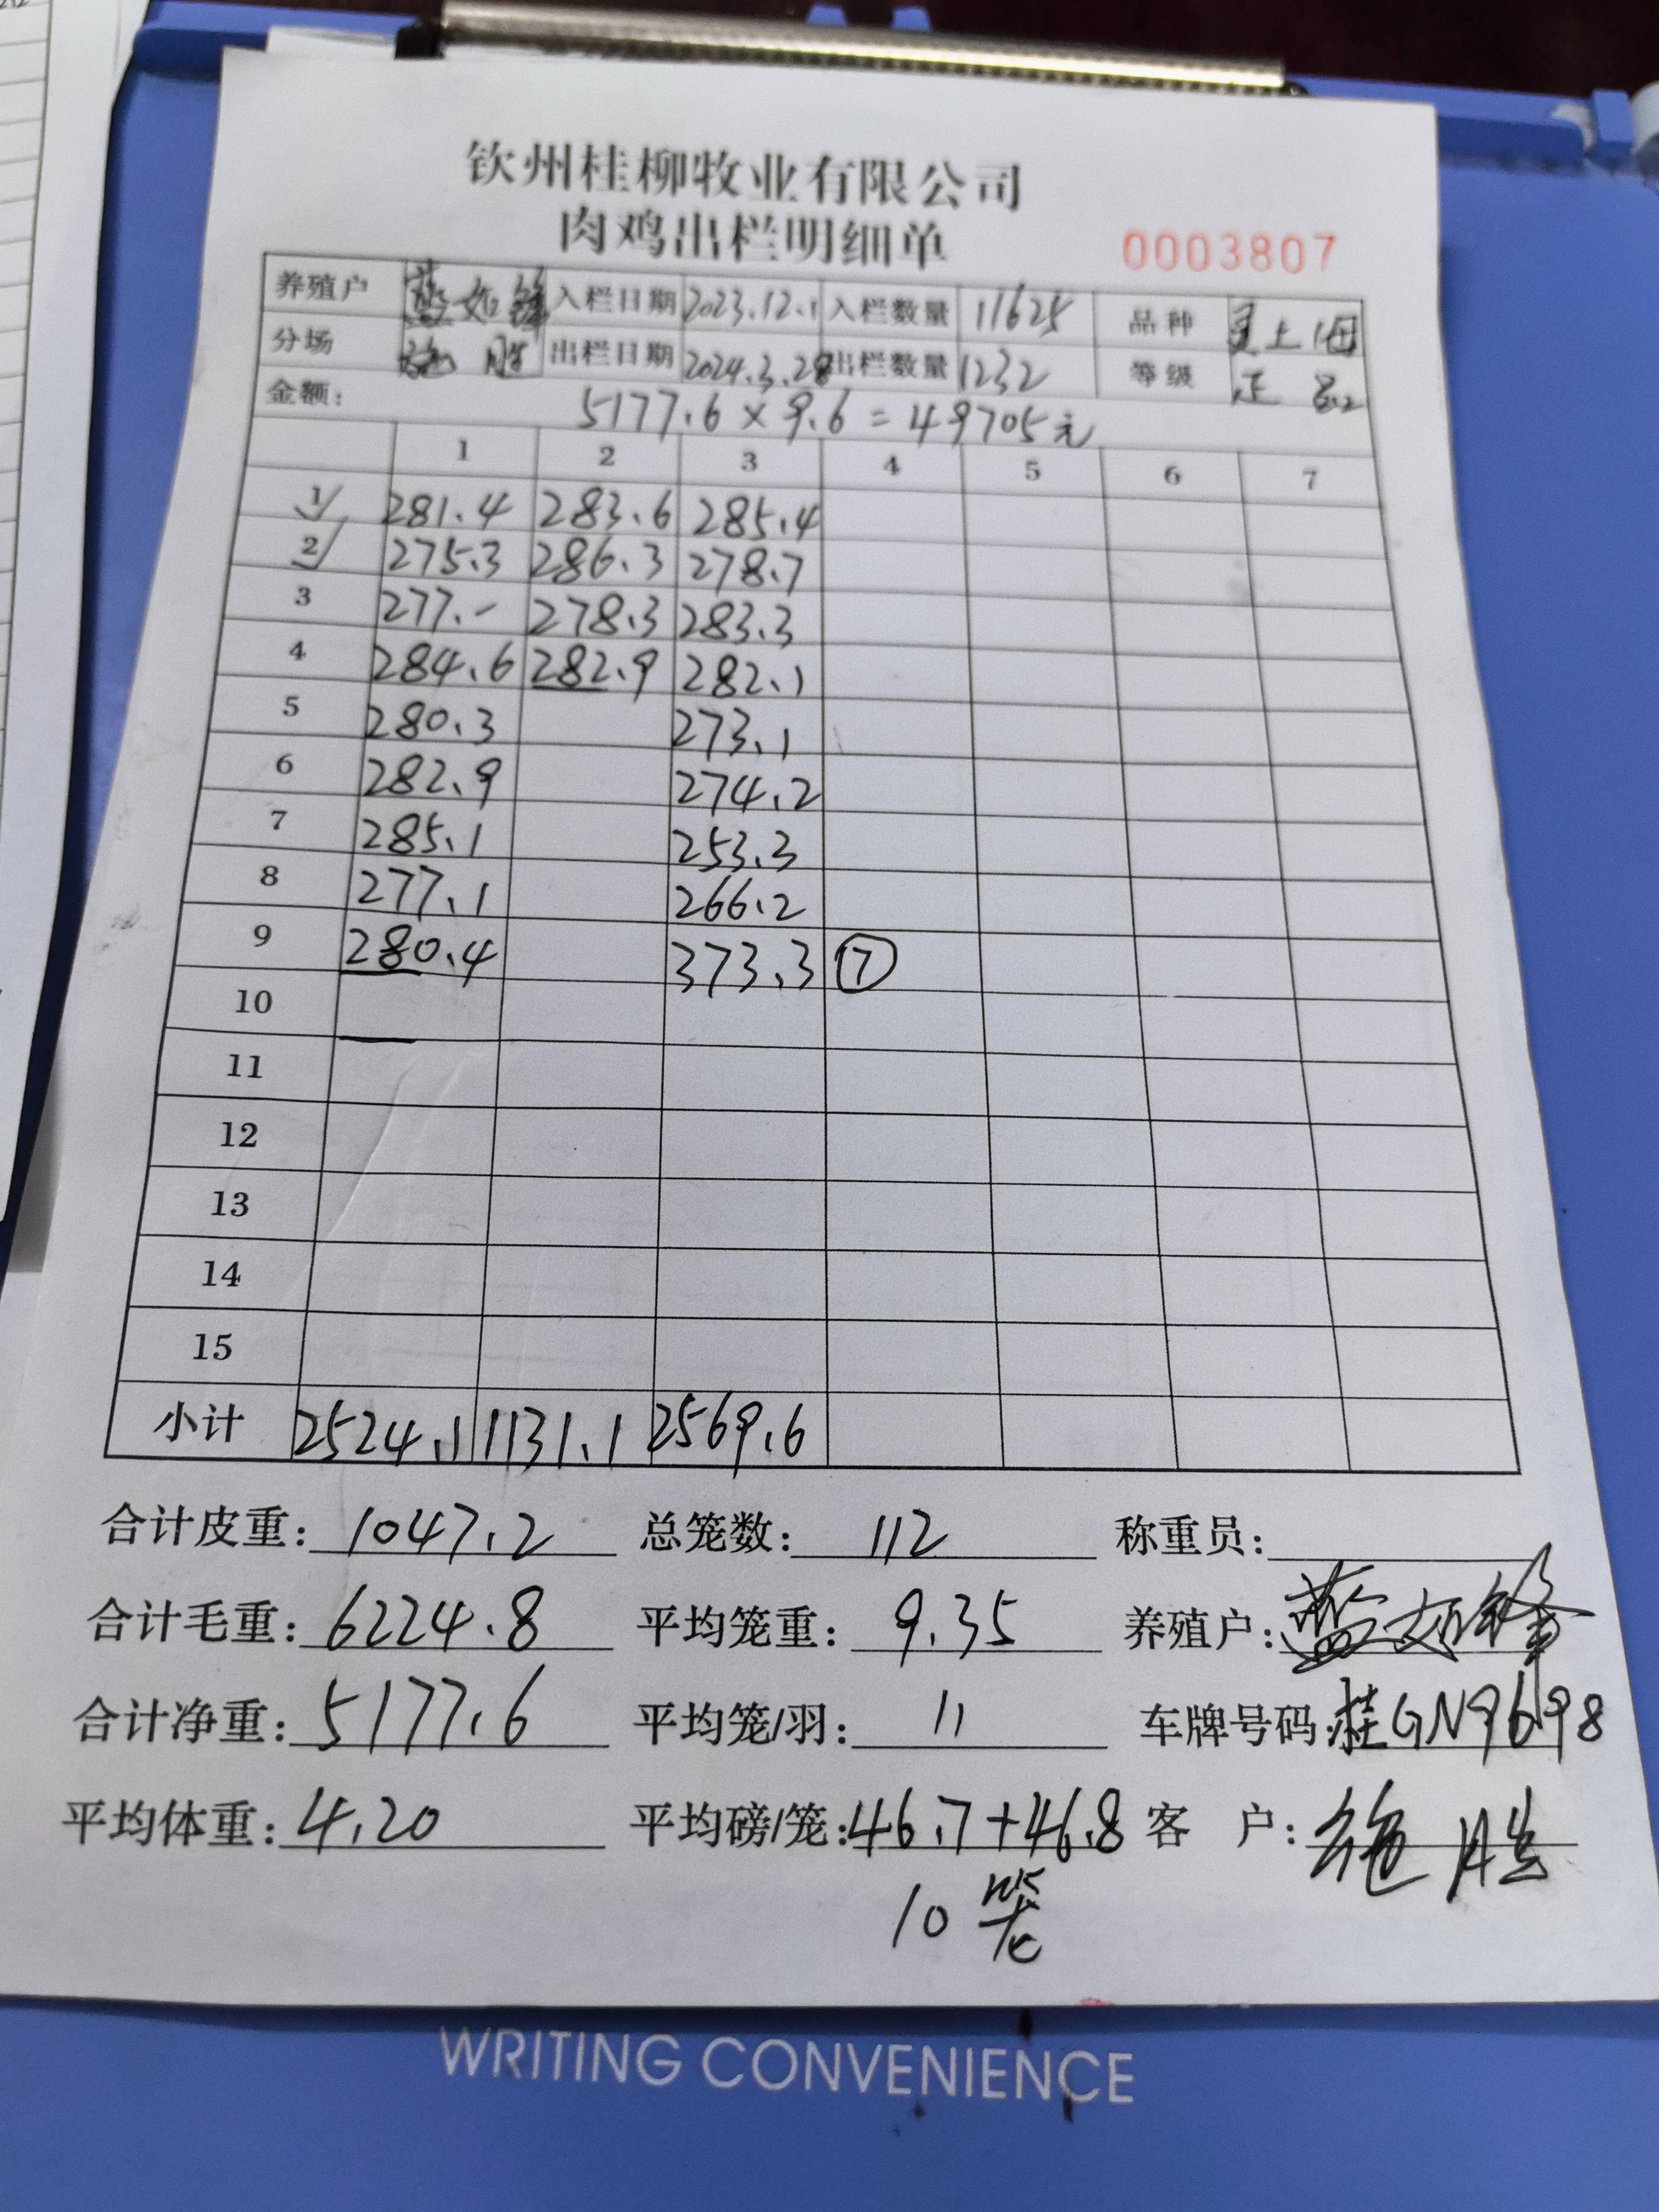 钦州桂柳牧业有限公司
肉鸡出栏明细单 0003807
养殖户 蓝如锋 入栏日期 2023.12.1 入栏数量 11625 品种 土
分场 胜 出栏日期 2024.3.28 出栏数量 1232 等级 正品
金额: 5177.6 × 9.6 = 49705元
1 2 3 4 5 6 7
1 281.4 283.6 285.4
2 275.3 286.3 278.7
3 277.- 278.3 283.3
4 284.6 282.9 282.1
5 280.3 273.1
6 282.9 274.2
7 285.1 253.3
8 277.1 266.2
9 280.4 373.3 ⑦
10
11
12
13
14
15
小计 2524.1 1131.1 2569.6
合计皮重: 1047.2 总笼数: 112 称重员:
合计毛重: 6224.8 平均笼重: 9.35 养殖户: 蓝如锋
合计净重: 5177.6 平均笼/羽: 11 车牌号码: 桂GN9698
平均体重: 4.20 平均磅/笼: 46.7+46.8 客 户: 胜
10 笼
WRITING CONVENIENCE